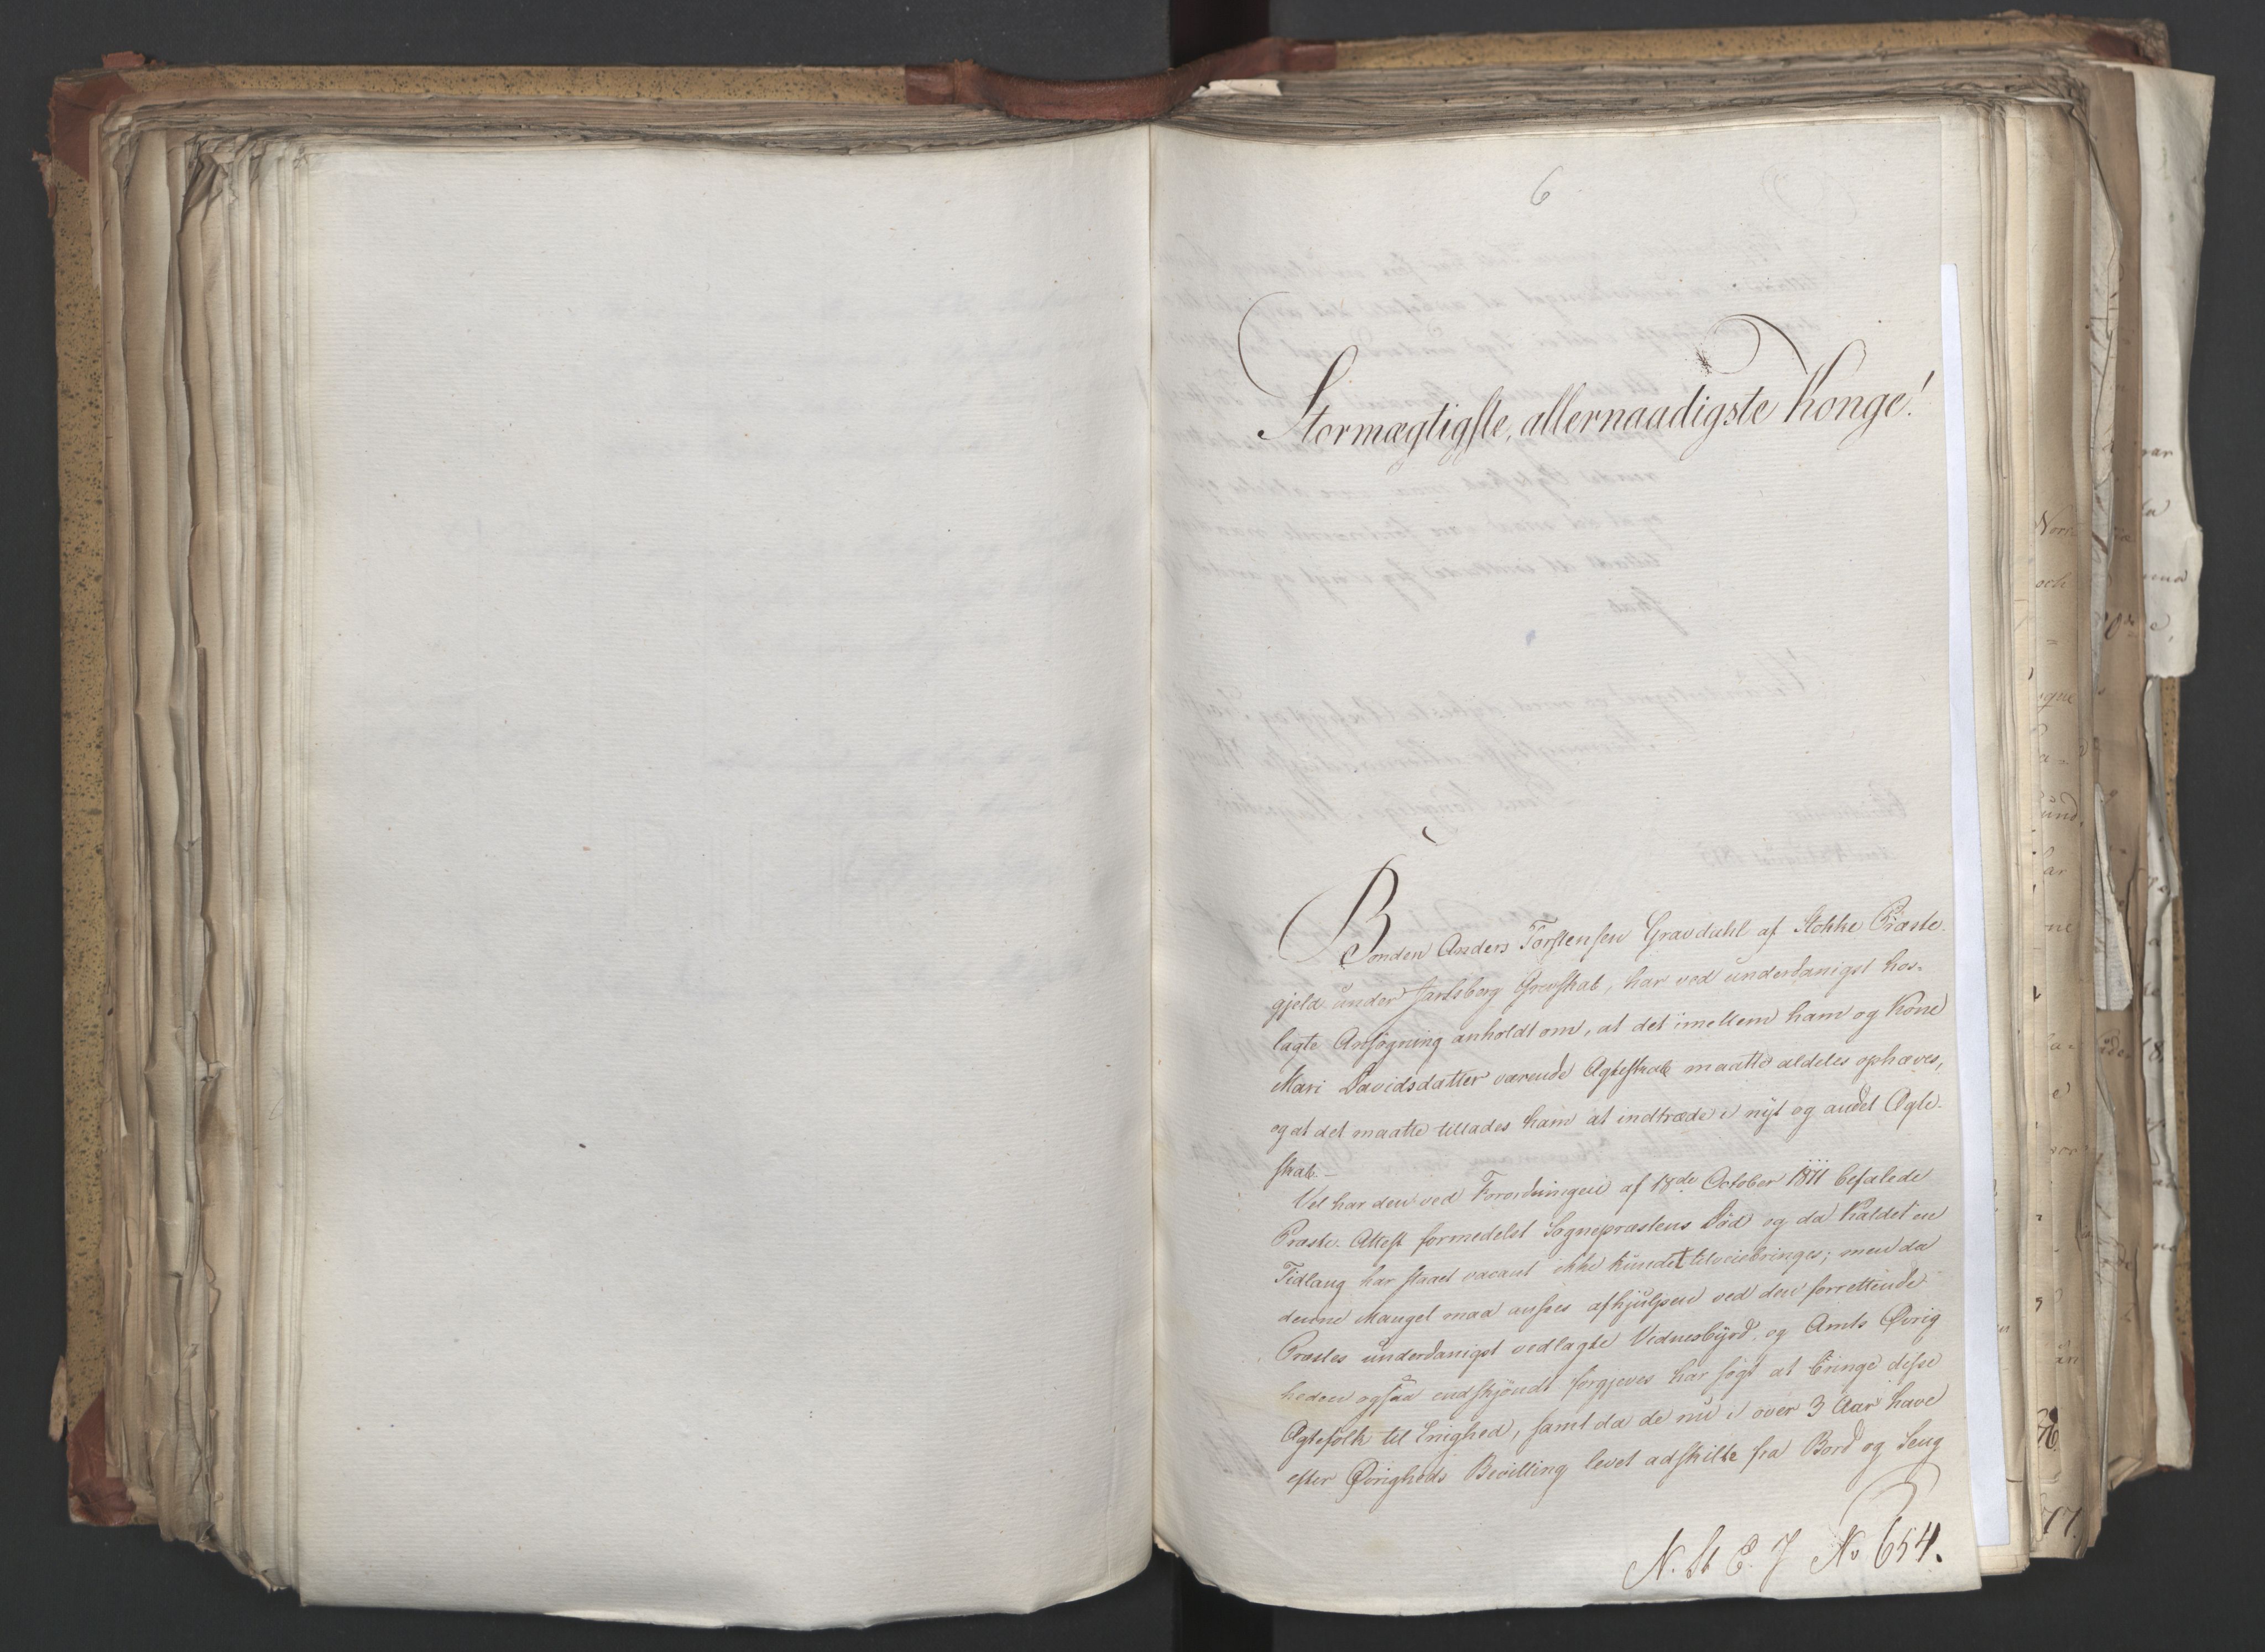 6
Stormægtigste, allernaadigste Konge!
Bonden Anders Torstensen Gravdahl af Stokke Præste-
gjeld under Jarlsberg Grevskab, har ved underdanigst hos-
lagte Ansøgning anholdt om, at det imellem ham og Kone
Mari Davidsdatter værende Ægteskab maatte aldeles ophæves,
og at det maatte tillades ham at indtræde i nyt og andet Ægte-
skab.—
Vel har den ved Forordningen af 18de October 1811 befalede
Præste-Attest formedelst Sognepræstens Død og da Kaldet en
Tidlang har staaet vacant ikke kundet tilveiebringes; men da
denne Mangel maa ansees afhjulpen ved den forrettende
Præstes underdanigst vedlagte Vidnesbyrd, og Amts Øvrig
heden ogsaa endskjöndt forgjeves har søgt at bringe disse
Ægtefolk til Enighed, samt da de nu i over 3 Aar have
efter Øvrigheds Bevilling levet adskilte fra Bord og Seng
N. St E. J No 654.